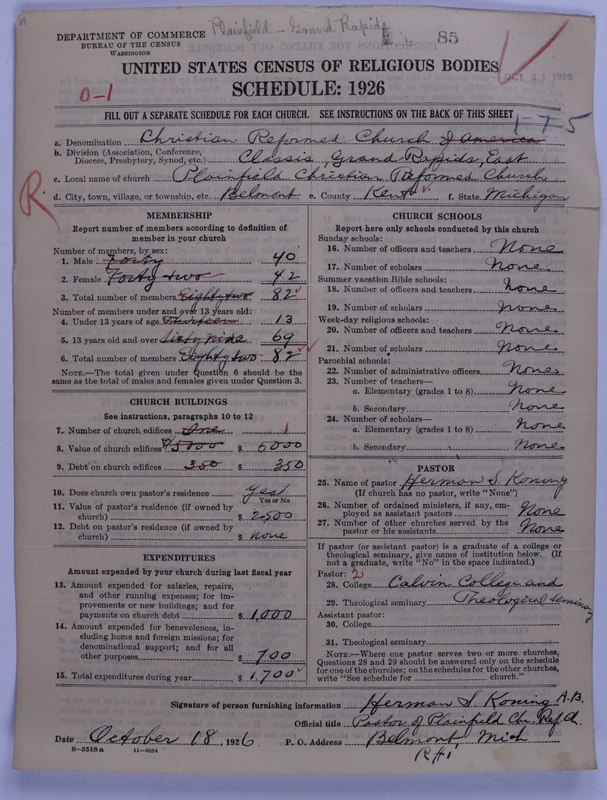 Plainfield - Grand Rapids
85
DEPARTMENT OF COMMERCE
BUREAU OF THE CENSUS
WASHINGTON
UNITED STATES CENSUS OF RELIGIOUS BODIES
OCT 21 1926
SCHEDULE: 1926
0-1
FILL OUT A SEPARATE SCHEDULE FOR EACH CHURCH. SEE INSTRUCTIONS ON THE BACK OF THIS SHEET
1-75
a. Denomination Christian Reformed Church
b. Division (Association, Conference, Diocese, Presbytery, Synod, etc.) Classis, Grand Rapids, East
c. Local name of church Plainfield Christian Reformed Church
R.
d. City, town, village, or township, etc. Belmont e. County Kent f. State Michigan
MEMBERSHIP
Report number of members according to definition of
member in your church
Number of members, by sex:
1. Male Forty 40
2. Female Forty two 42
3. Total number of members Eighty two 82
Number of members under and over 13 years old:
4. Under 13 years of age Thirteen 13
5. 13 years old and over Sixty Nine 69
6. Total number of members Eighty two 82
NOTE.—The total given under Question 6 should be the
same as the total of males and females given under Question 3.
CHURCH BUILDINGS
See instructions, paragraphs 10 to 12
7. Number of church edifices One 1
8. Value of church edifices $ 6000
9. Debt on church edifices 350 $ 350
10. Does church own pastor's residence Yes
Yes or No
11. Value of pastor's residence (if owned by
church) $ 2500
12. Debt on pastor's residence (if owned by
church) $ none
EXPENDITURES
Amount expended by your church during last fiscal year
13. Amount expended for salaries, repairs,
and other running expenses; for im-
provements or new buildings; and for
payments on church debt $ 1,000
14. Amount expended for benevolences, in-
cluding home and foreign missions; for
denominational support; and for all
other purposes $ 700
15. Total expenditures during year $ 1,700
CHURCH SCHOOLS
Report here only schools conducted by this church
Sunday schools:
16. Number of officers and teachers None
17. Number of scholars None
Summer vacation Bible schools:
18. Number of officers and teachers None
19. Number of scholars None
Week-day religious schools:
20. Number of officers and teachers None
21. Number of scholars None
Parochial schools:
22. Number of administrative officers None
23. Number of teachers—
a. Elementary (grades 1 to 8) None
b. Secondary None
24. Number of scholars—
a. Elementary (grades 1 to 8) None
b. Secondary None
PASTOR
25. Name of pastor Herman S. Koning
(If church has no pastor, write "None")
26. Number of ordained ministers, if any, em-
ployed as assistant pastors None
27. Number of other churches served by the
pastor or his assistants None
If pastor (or assistant pastor) is a graduate of a college or
theological seminary, give name of institution below. (If
not a graduate, write "No" in the space indicated.)
Pastor: 2
28. College Calvin College and
29. Theological seminary Theological Seminary
Assistant pastor:
30. College
31. Theological seminary
NOTE.—Where one pastor serves two or more churches,
Questions 28 and 29 should be answered only on the schedule
for one of the churches; on the schedules for the other churches,
write "See schedule for church."
Signature of person furnishing information Herman S. Koning A.B.
Official title Pastor of Plainfield Chr. Ref. Ch.
Date October 18, 1926 P. O. Address Belmont, Mich
8-5518a 11-9054
R#1